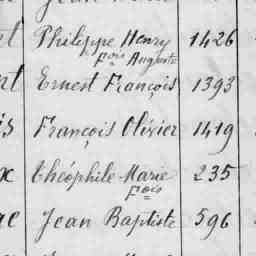 Philippe Henry 1426
pois Auguste
nt Ernest François 1393
is François Olivier 1419
x Théophile Marie 235
pois
ge Jean Baptiste 596